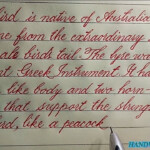 bird is native of Australia
from the extraordinary
ale birds tail. The lyre wa
nt Greek Instrument. It ha
like body and two horn-
that support the string
rd, like a peacock,
HAND